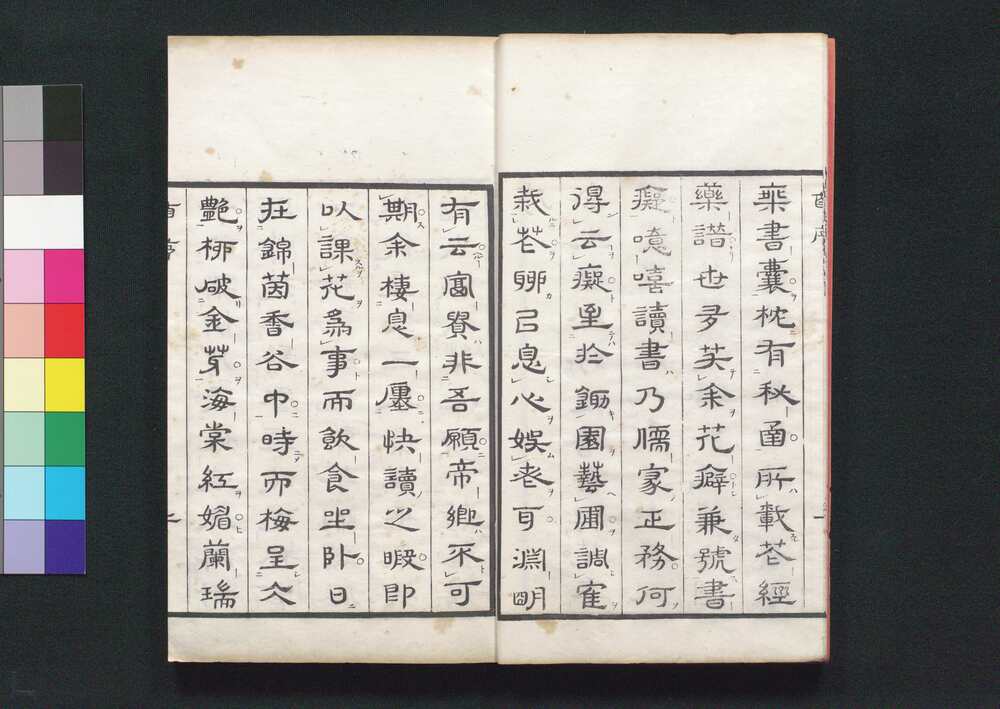 乘書囊枕有秘函所載花經
藥譜世多笑余花癖兼號書
癡噫嘻讀書乃儒家正務何
得云癡至於鋤園藝圃調寉
栽花聊㠯息心娛老耳淵明
有云富貴非吾願帝鄉不可
期余棲息一廛快讀之暇即
以課花爲事而飲食坐卧日
在錦茵香谷中時而梅呈人
艷柳破金芽海棠紅媚蘭瑞